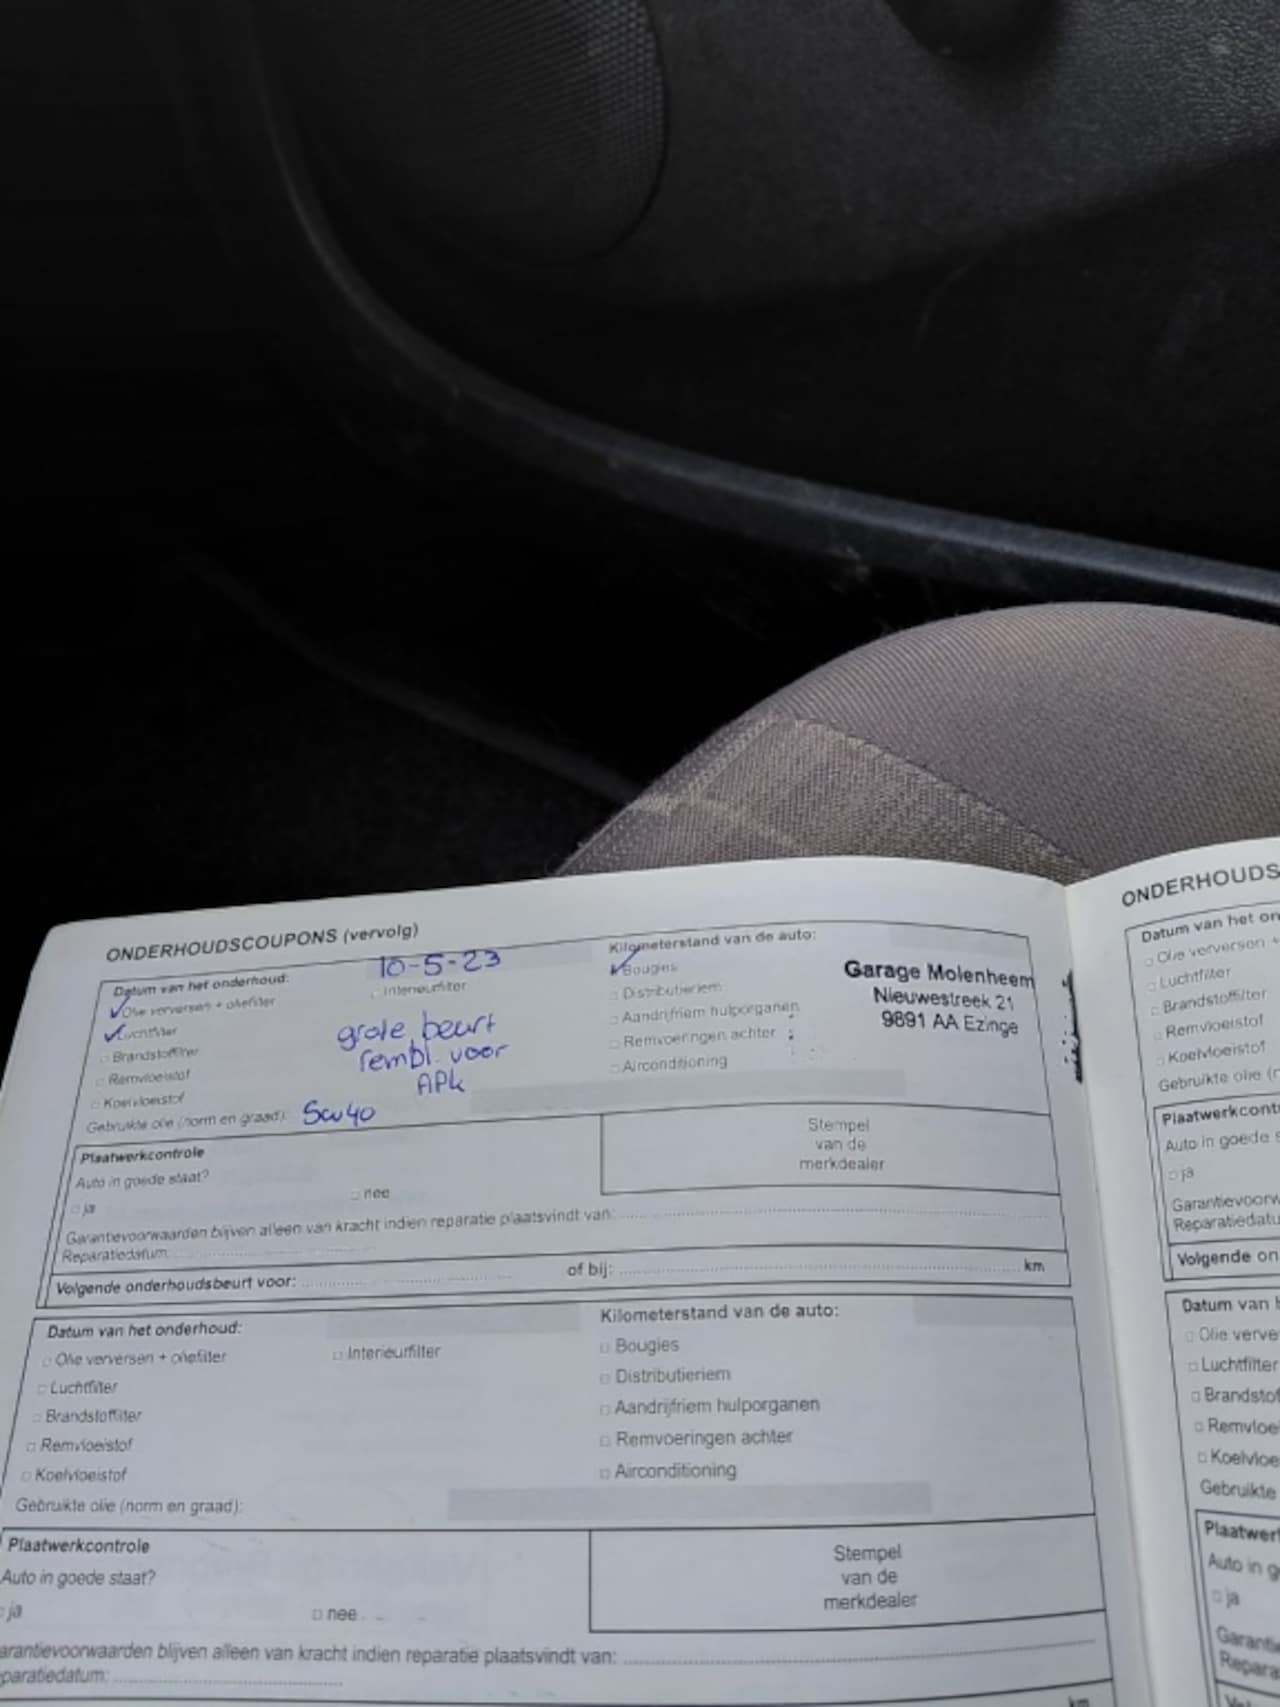 ONDERHOUDSCOUPONS (vervolg)
Datum van het onderhoud: 10-5-23
Kilometerstand van de auto:
Olie verversen + oliefilter
Interieurfilter
Bougies
Luchtfilter
Distributieriem
Brandstoffilter
Aandrijfriem hulporganen
Remvloeistof
Remvoeringen achter
Koelvloeistof
Airconditioning
grote beurt
rembl. voor
APK
Garage Molenheem
Nieuwestreek 21
9891 AA Ezinge
Gebruikte olie (norm en graad): 5w40
Plaatwerkcontrole
Auto in goede staat?
ja
nee
Stempel
van de
merkdealer
Garantievoorwaarden blijven alleen van kracht indien reparatie plaatsvindt van:
Reparatiedatum:
Volgende onderhoudsbeurt voor: of bij: km
Datum van het onderhoud:
Kilometerstand van de auto:
Olie verversen + oliefilter
Interieurfilter
Bougies
Luchtfilter
Distributieriem
Brandstoffilter
Aandrijfriem hulporganen
Remvloeistof
Remvoeringen achter
Koelvloeistof
Airconditioning
Gebruikte olie (norm en graad):
Plaatwerkcontrole
Auto in goede staat?
ja
nee
Stempel
van de
merkdealer
arantievoorwaarden blijven alleen van kracht indien reparatie plaatsvindt van:
paratiedatum:
km
ONDERHOUDS
Datum van het on
Olie verversen +
Luchtfilter
Brandstoffilter
Remvloeistof
Koelvloeistof
Gebruikte olie (n
Plaatwerkcont
Auto in goede s
ja
Garantievoorw
Reparatiedatu
Volgende on
Datum van h
Olie verve
Luchtfilter
Brandstof
Remvloe
Koelvloe
Gebruikte
Plaatwer
Auto in g
ja
Garanti
Repara